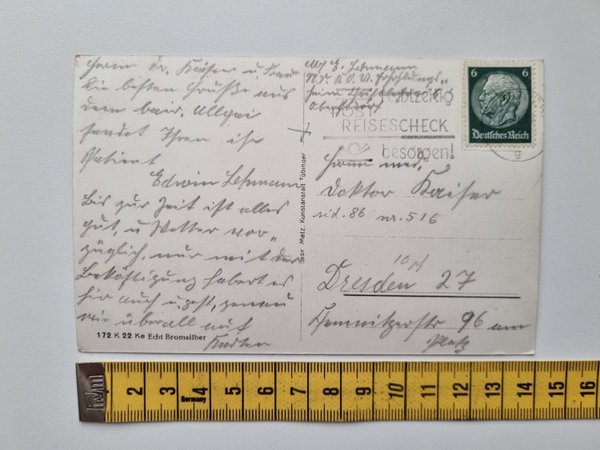 Herrn Dr. Kaiser u. Frau
Die besten Grüße aus
dem bair. Allgäi
sendet Ihnen ihr
Patient
Edwin Lehmann
Bis zur Zeit ist alles
gut, u Wetter vor-
züglich, nur mit der
Beköstigung habert es
hir auch u. zwar, genau
wie überall auf
Karten
172 K 22 Ke Echt Bromsilber
Geor Metz, Kunstanstalt Tübingen
Abs. E. Lehmann
Oberstdorf
Rechtzeitig
POST
REISESCHECK
besorgen!
6 6
Deutsches Reich
9
Herrn med.
Doktor Kaiser
sid. 86 nr. 516
10 pf
Dresden 27
Chemnitzerstr 96 am
Platz
2 3 4 5 6 7 8 9 10 11 12 13 14 15 16
Germany